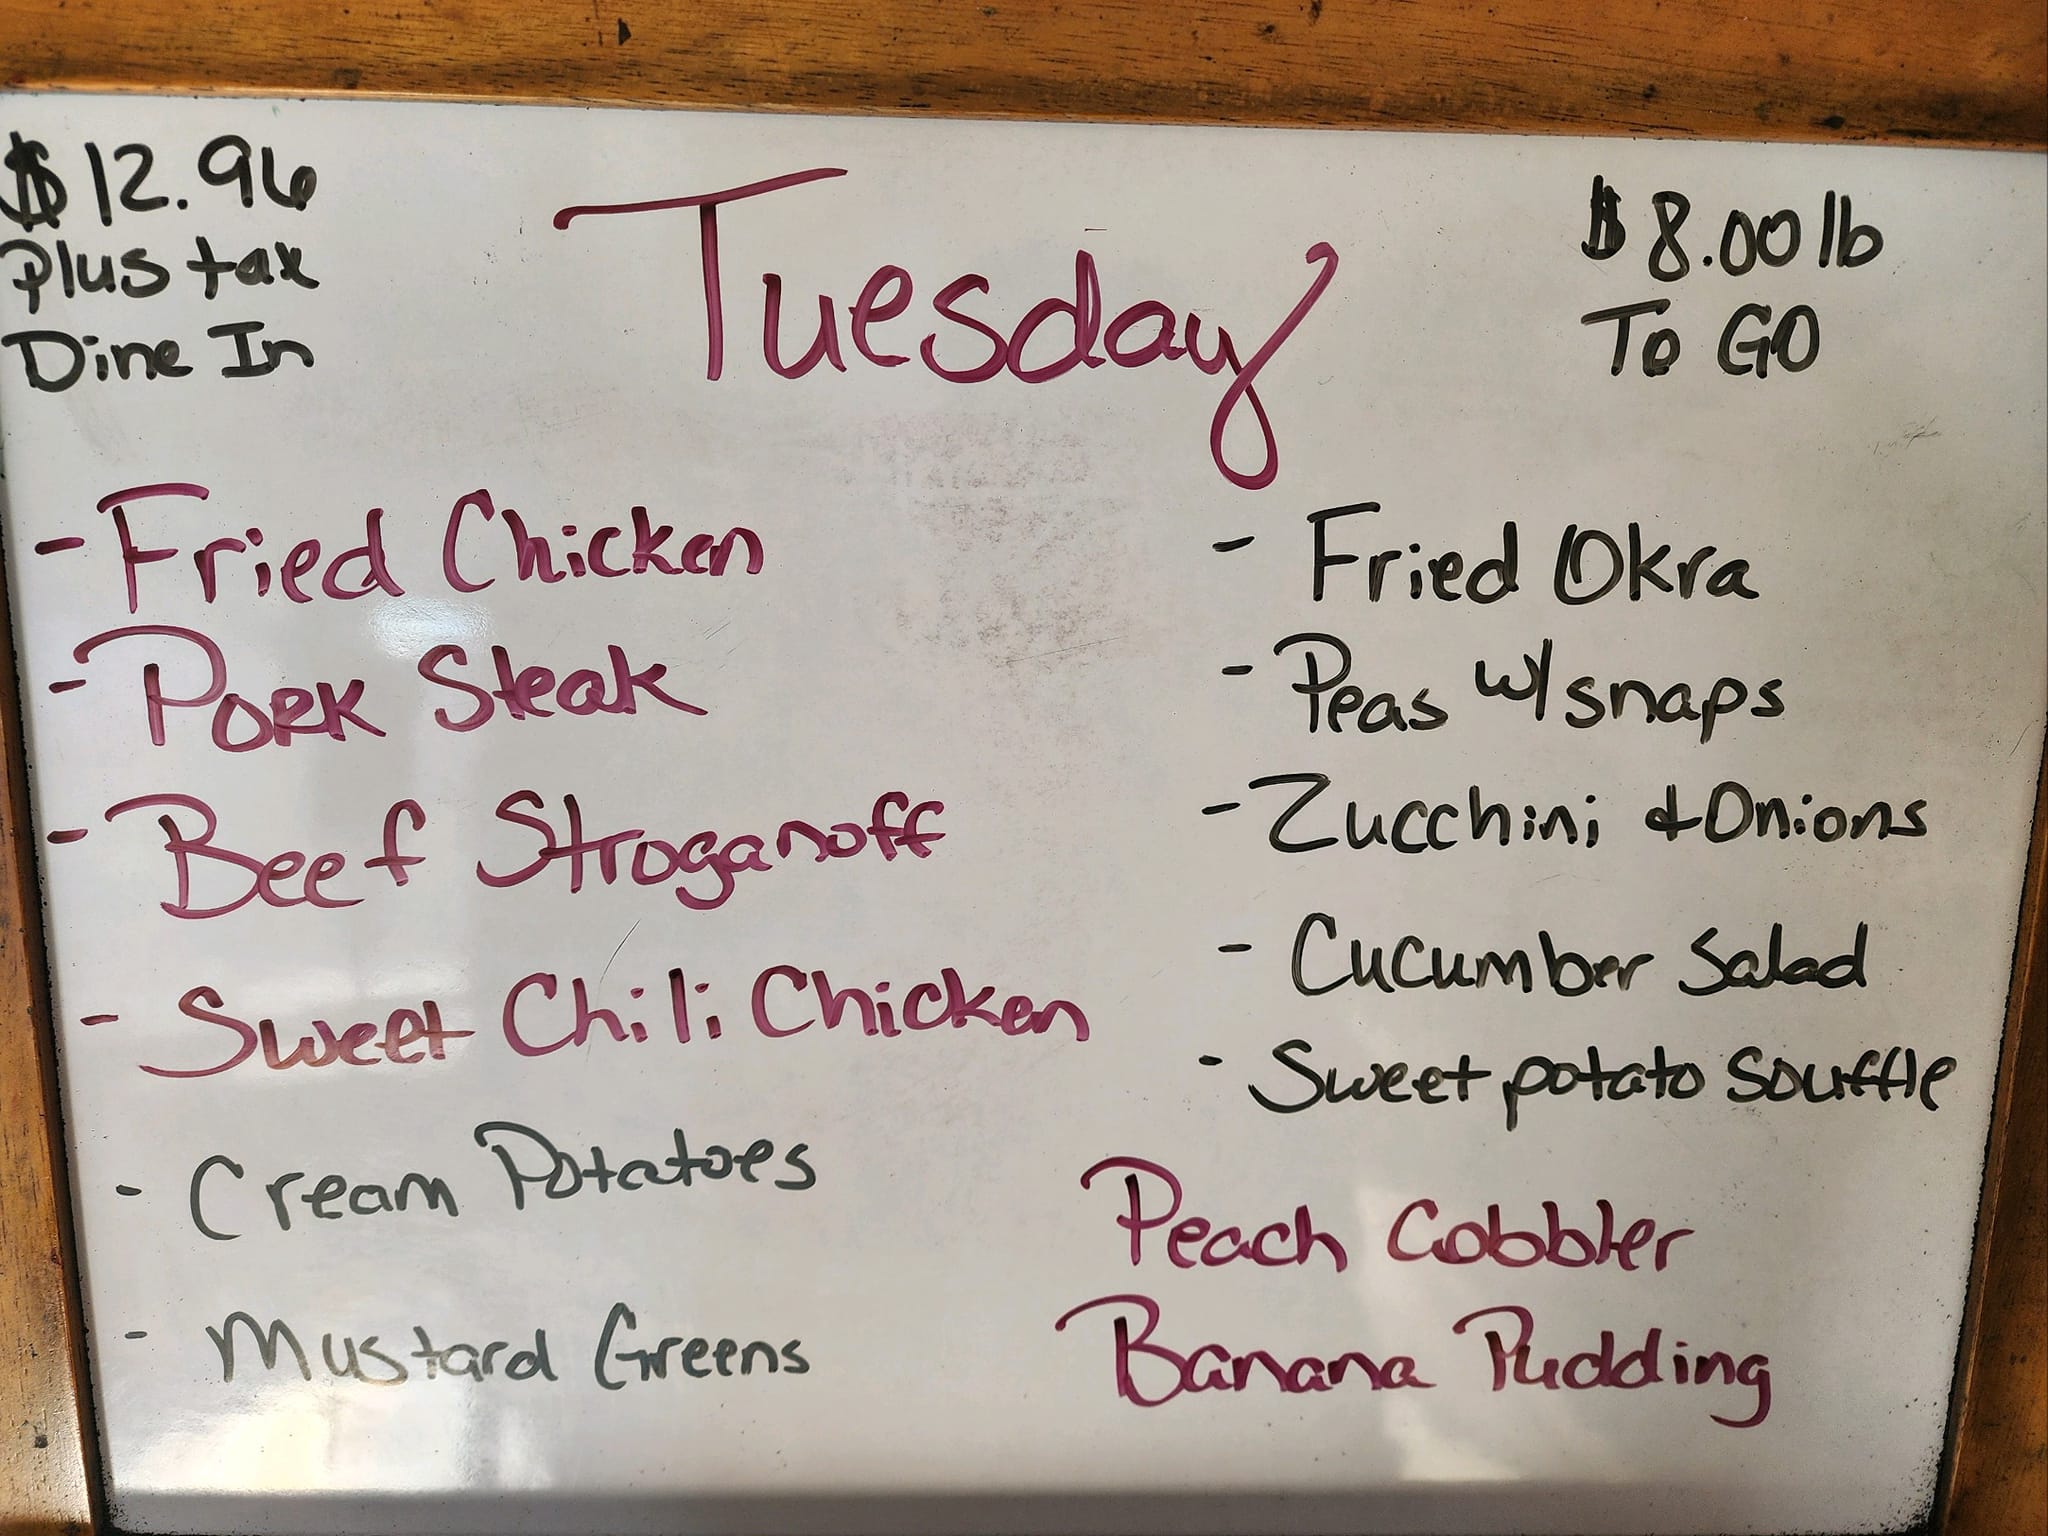 $12.96
Plus tax
Dine In
Tuesday
$8.00 lb
To GO
- Fried Chicken
- Pork Steak
- Beef Stroganoff
- Sweet Chili Chicken
- Cream Potatoes
- Mustard Greens
- Fried Okra
- Peas w/snaps
- Zucchini & Onions
- Cucumber Salad
- Sweet potato Souffle
Peach Cobbler
Banana Pudding